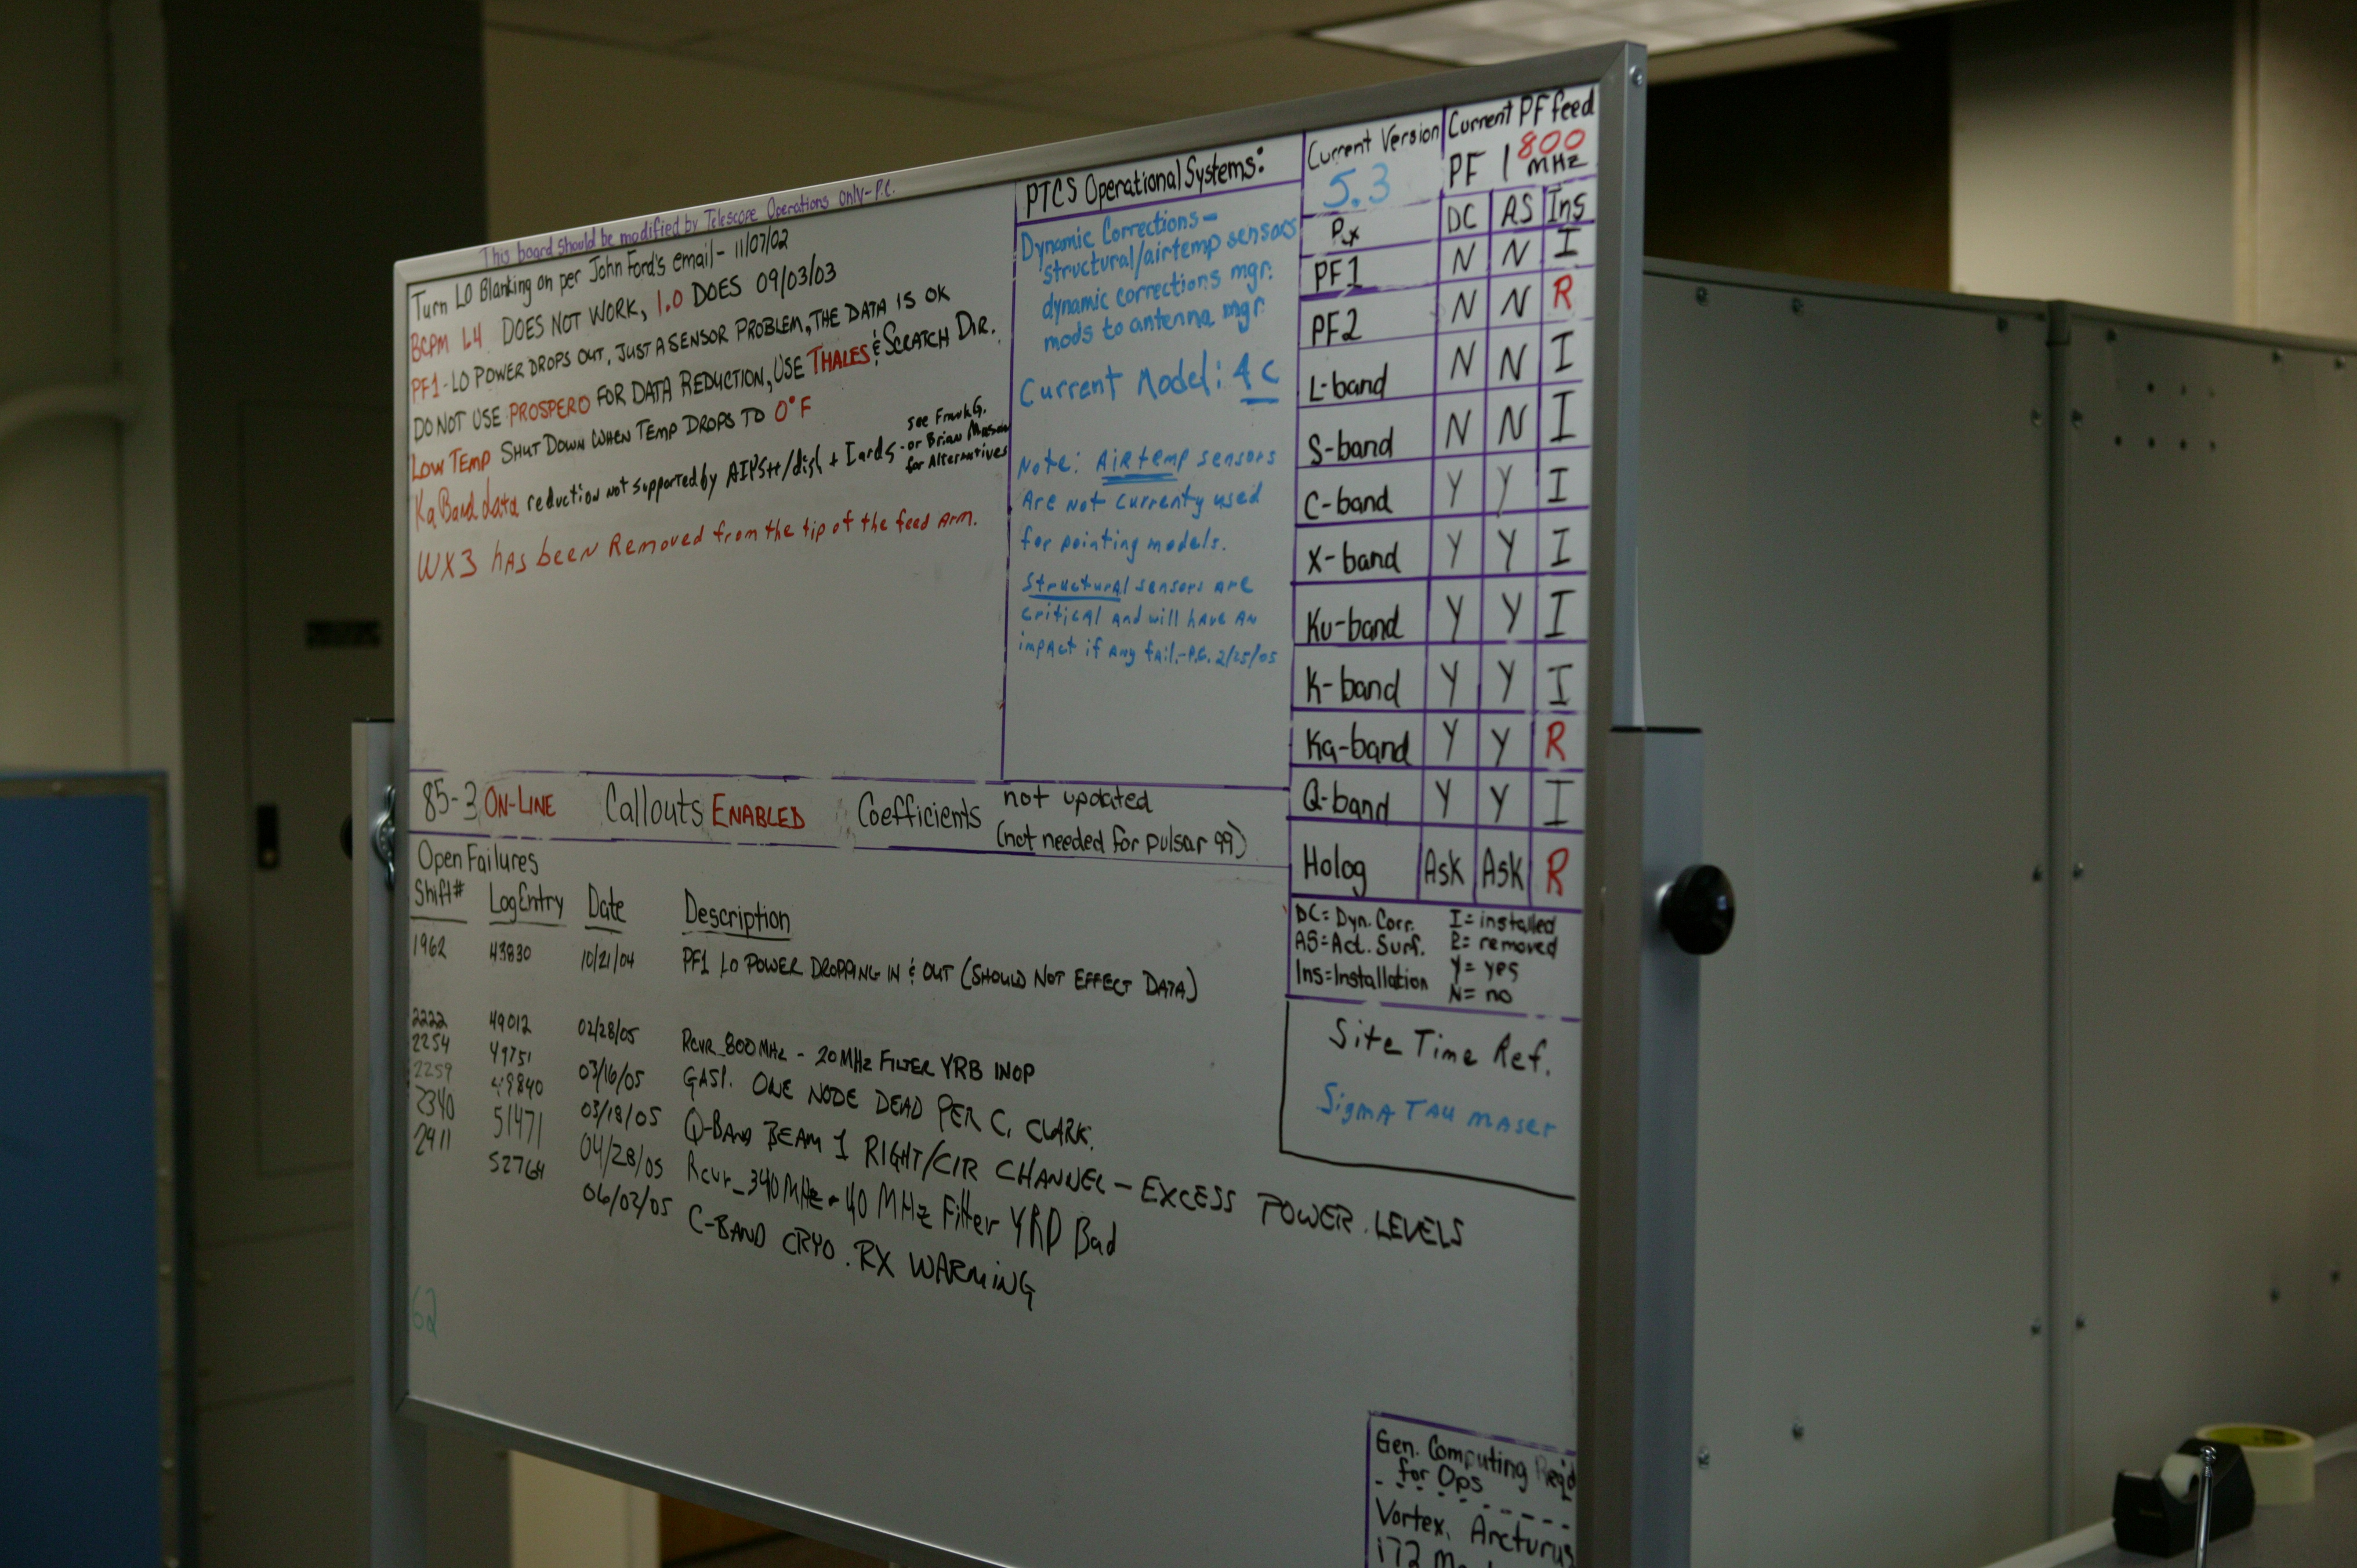 This board should be modified by Telescope Operations Only-P.C.
Turn LO Blanking on per John Ford's email- 11/07/02
BCPM 1.4 DOES NOT WORK, 1.0 DOES 09/03/03
PF1-LO POWER DROPS OUT, JUST A SENSOR PROBLEM, THE DATA IS OK
DO NOT USE PROSPERO FOR DATA REDUCTION, USE THALES & SCRATCH DIR.
LOW TEMP SHUT DOWN WHEN TEMP DROPS TO 0°F
Ka Band data reduction not supported by AIPS++/dish + Iards - see Frank G.
or Brian Mason
for Alternatives
WX3 has been Removed from the tip of the feed arm.
PTCS Operational Systems:
Dynamic Corrections-
structural/airtemp sensors
dynamic corrections mgr.
mods to antenna mgr.
Current Model: 4c
Note: Airtemp sensors
Are not currenty used
for pointing models.
Structural sensors are
critical and will have an
impact if any fail.-P.C. 2/25/05
Current Version
5.3
Current PF feed
PF 1 800 MHz
Rx DC AS Ins
PF1 N N I
PF2 N N R
L-band N N I
S-band N N I
C-band Y Y I
X-band Y Y I
Ku-band Y Y I
K-band Y Y I
Ka-band Y Y R
Q-band Y Y I
Holog Ask Ask R
DC= Dyn. Corr. I= installed
AS=Act. Surf. R= removed
Ins=Installation Y= yes
N= no
Site Time Ref.
Sigma Tau maser
85-3 ON-LINE Callouts ENABLED Coefficients not updated
(not needed for pulsar 99)
Open Failures
Shift# LogEntry Date Description
1962 43830 10/21/04 PF1 LO POWER DROPPING IN & OUT (SHOULD NOT EFFECT DATA)
2222 49012 02/28/05 RCVR_800MHz - 20MHz FILTER YRB INOP
2254 49751 03/16/05 GASP. ONE NODE DEAD PER C. CLARK.
2259 49840 03/18/05 Q-BAND BEAM 1 RIGHT/CIR CHANNEL - EXCESS POWER LEVELS
2340 51471 04/28/05 Rcvr_340MHz - 40 MHz Filter YRD Bad
2411 52764 06/02/05 C-BAND CRYO. RX WARMING
62
Gen. Computing Req'd
for Ops
Vortex, Arcturus